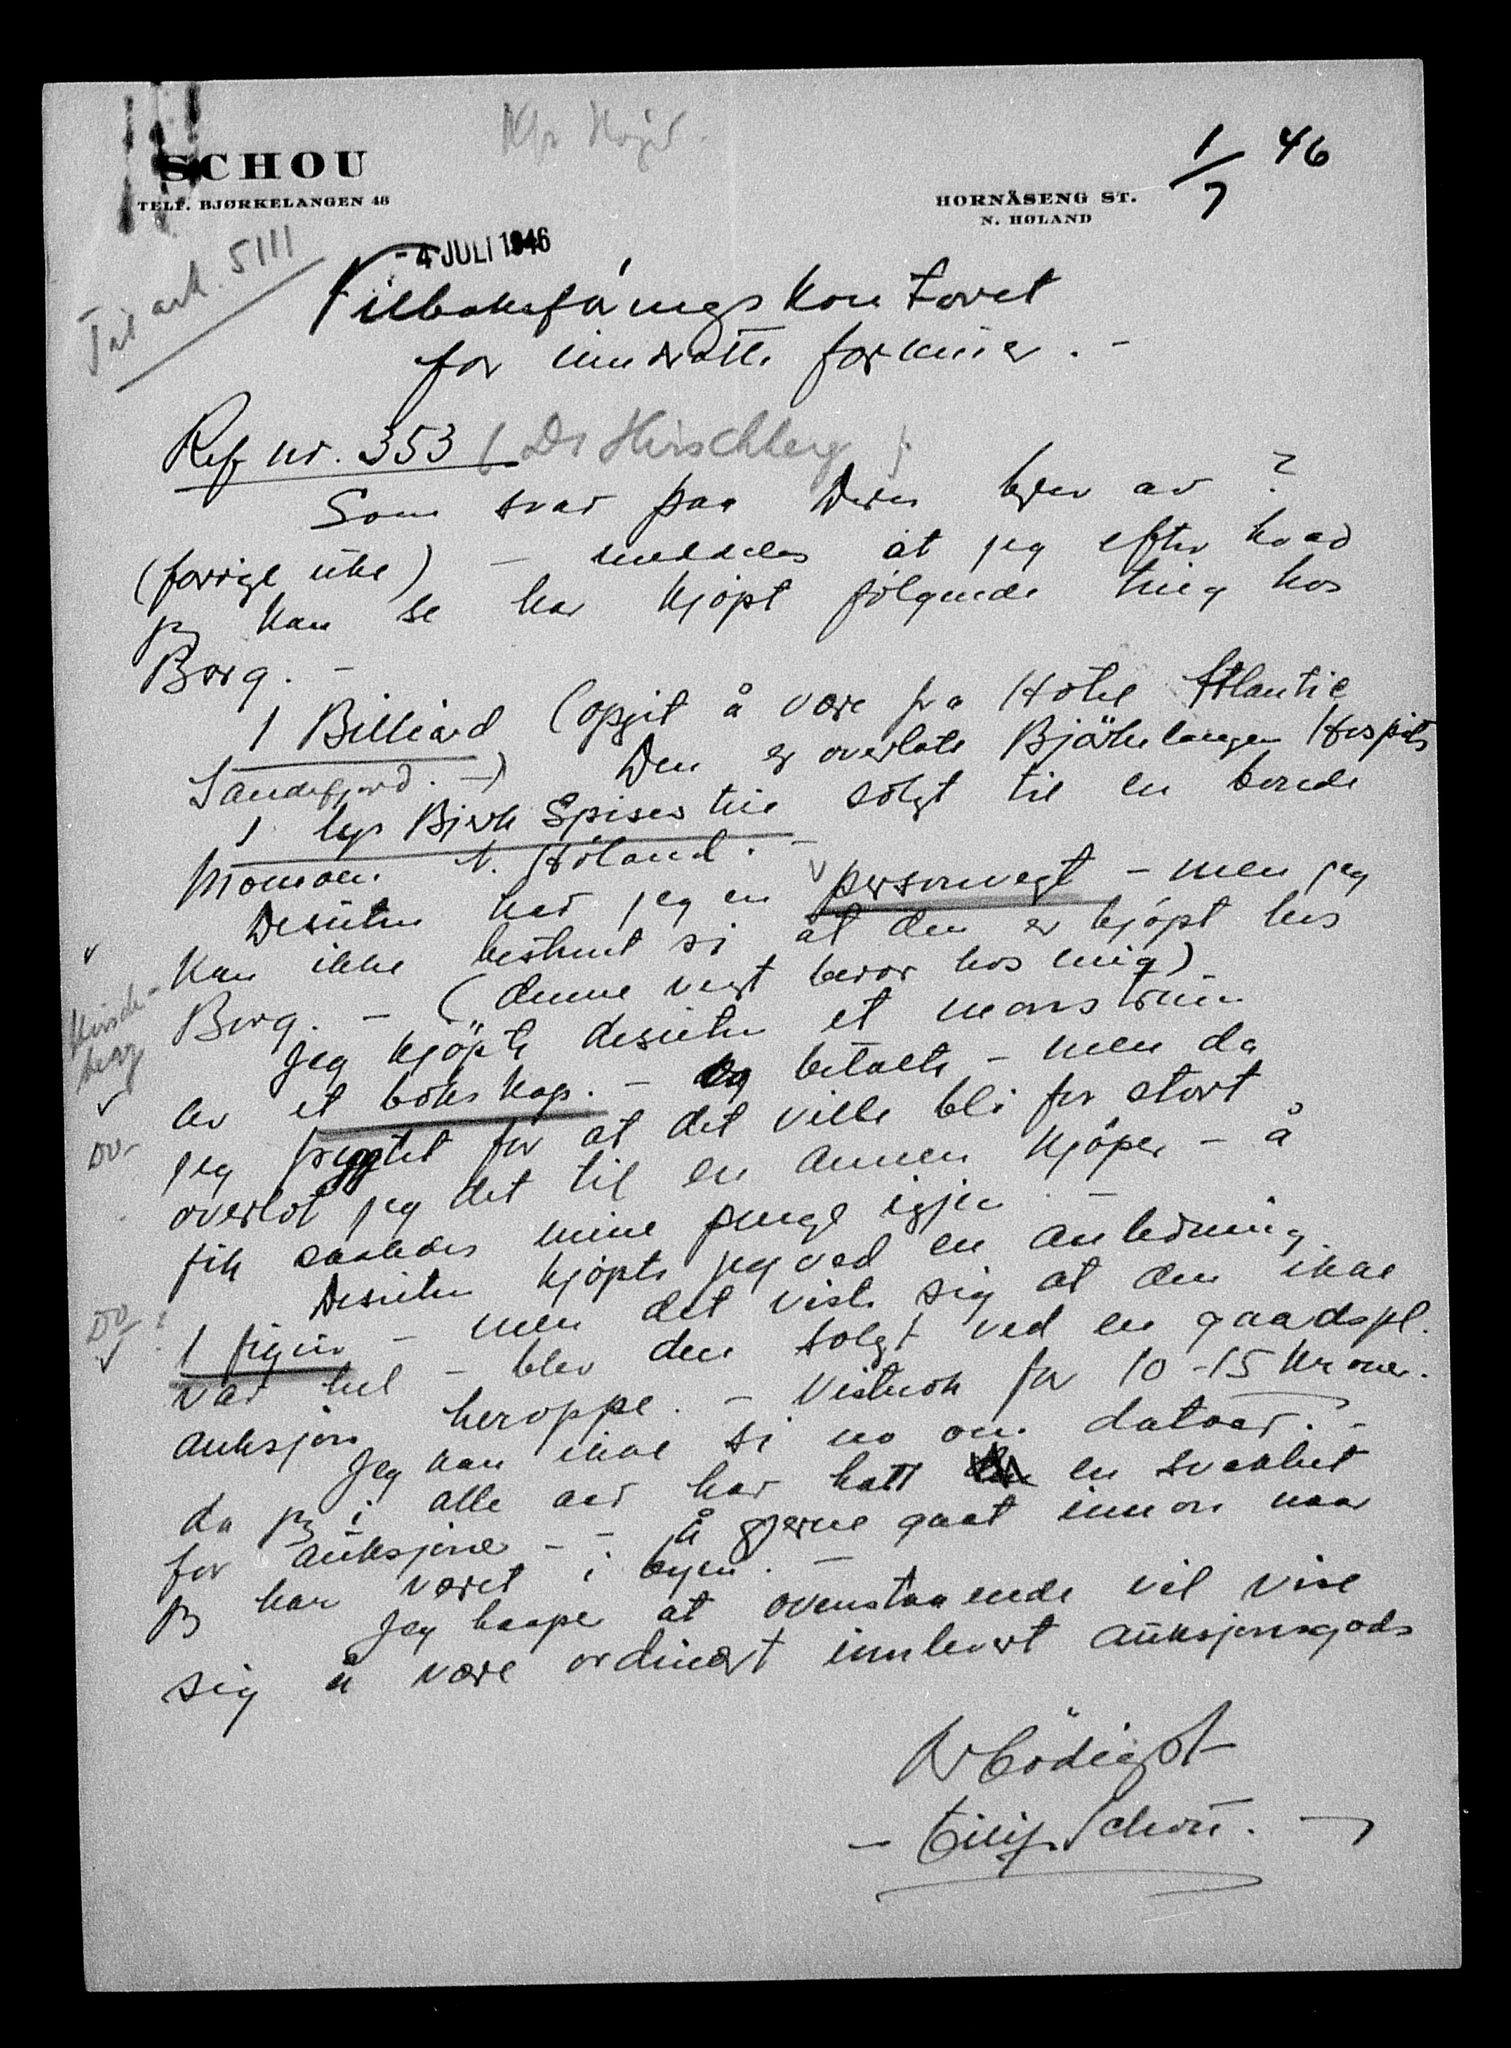 SCHOU
TELF. BJØRKELANGEN 48
HORNÅSENG ST.
N. HØLAND
1/7 46
- 4 JULI 1946
Til ark. 5111
Tilbakeføringskontoret
for inndratte formuer. -
Ref nr. 353 (Dr Hirschberg)
Som svar paa Deres brev av ?
(forrige uke) - meddeles at jeg efter hvad
jeg kan se har kjøpt følgende ting hos
Borg. -
1 Billiard (opgit å være fra Hotel Atlantic
Sandefjord. -) Den er overlatt Bjørkelangen Hospits
1 lys Bjerk Spisestue solgt til en bonde
N. Høland. -
Desuten har jeg en personvegt - men jeg
kan ikke bestemt si at den er kjøpt hos
Borg. - (denne vegt beror hos mig)
Hirsch-
berg
Jeg kjøpte desuten et monstrum
av et bokskap. - betalte - men da
Do-
jeg frygtet for at det ville bli for stort
overlot jeg det til en annen kjøper - å
fik saaledes mine penge igjen. -
Desuten kjøpte jeg ved en anledning
Do
1 figur - men det viste sig at den ikke
var hel - blev den solgt ved en gaardspl.
auksjon heroppe. - Vistnok for 10 - 15 kroner.
Jeg kan ikke si no om datoer? -
da jeg i alle aar har hatt en svakhet
for auksjoner - - å gjerne gaat innom naar
jeg har været i byen. -
Jeg haaper at ovenstaaende vil vise
sig å være ordinært innlevert auksjonsgods
Ærbødigst
- Schou. -